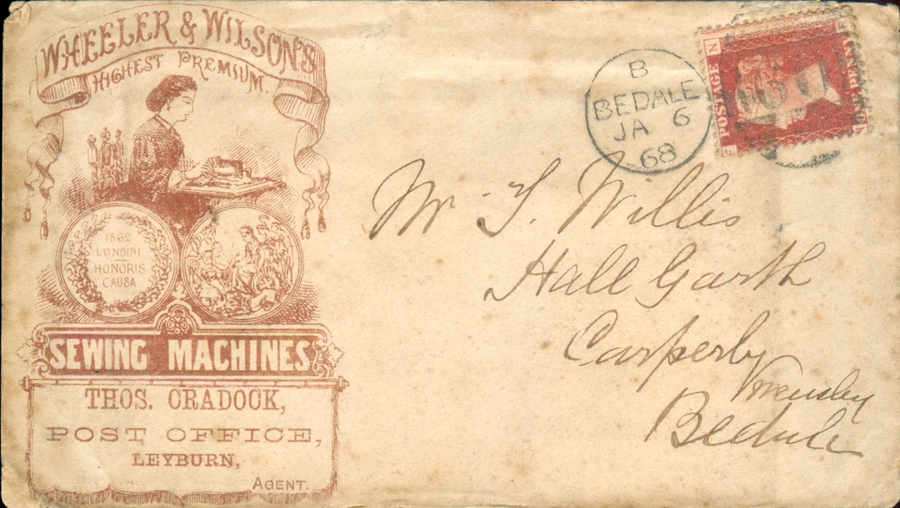 WHEELER & WILSON'S
HIGHEST PREMIUM.
1862
LONDINI
HONORIS
CAUSA
SEWING MACHINES
THOS. CRADOCK,
POST OFFICE,
LEYBURN,
AGENT.
B
BEDALE
JA 6
68
N
POSTAGE
E
ONE PENNY
Mr. T. Willis
Hall Garth
Carperby
Wensley
Bedale